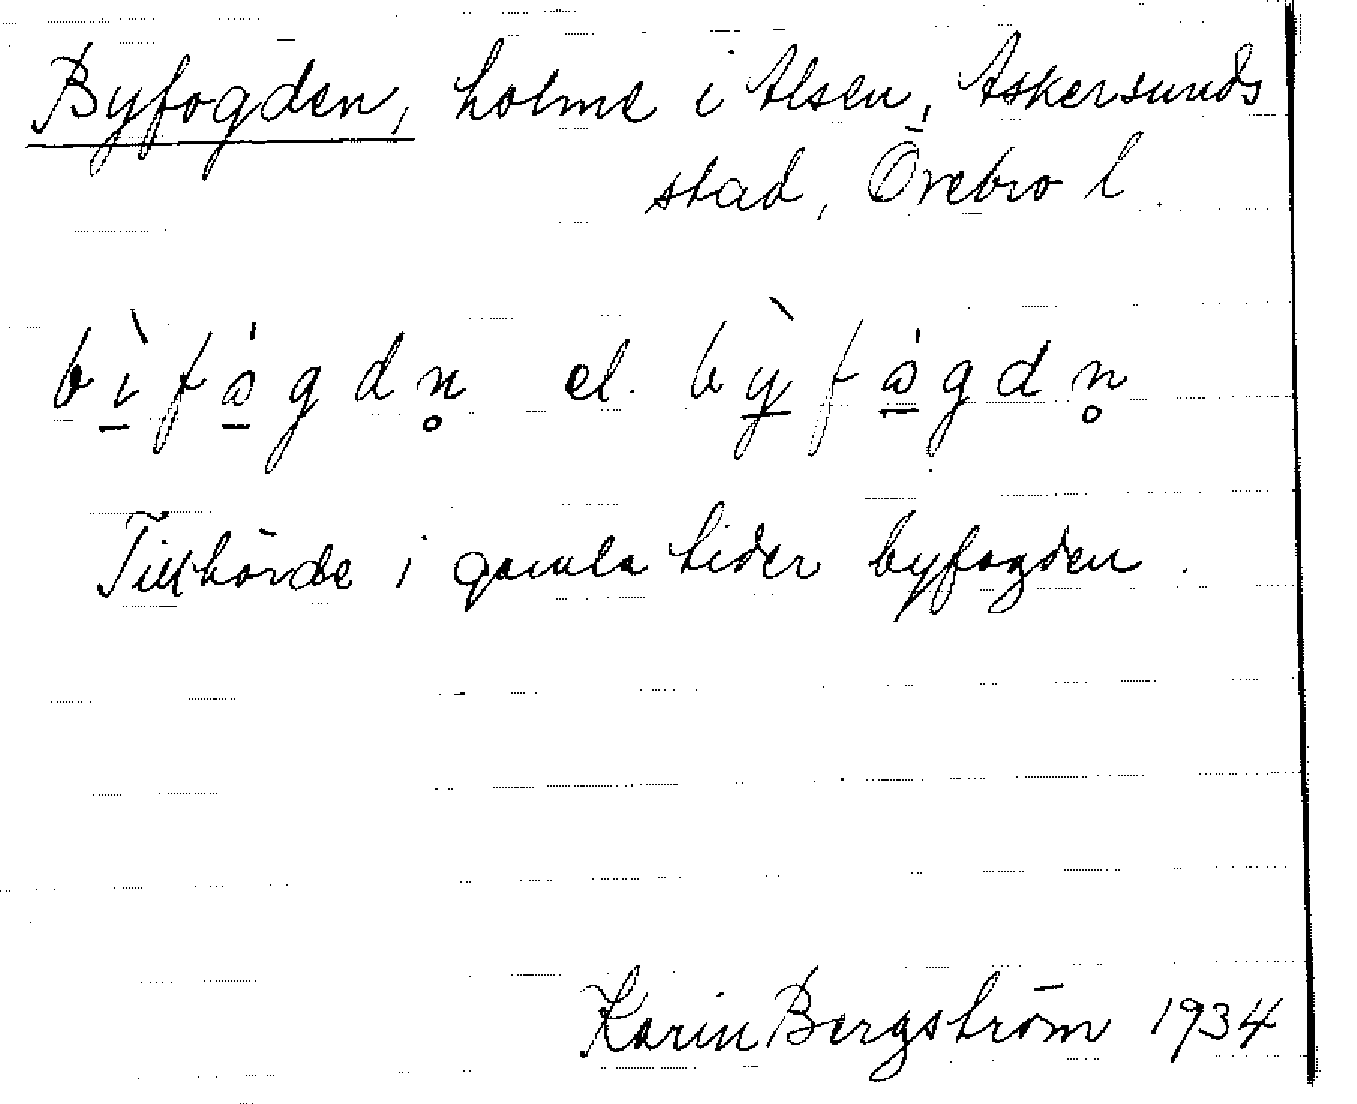 Byfogden, holme i Alsen, Askersunds
stad, Örebro l.
bì̠fá̠gdn̥ el. bỳ̠fá̠gdn̥
Tillhörde i gamla tider byfogden.
Karin Bergström 1934